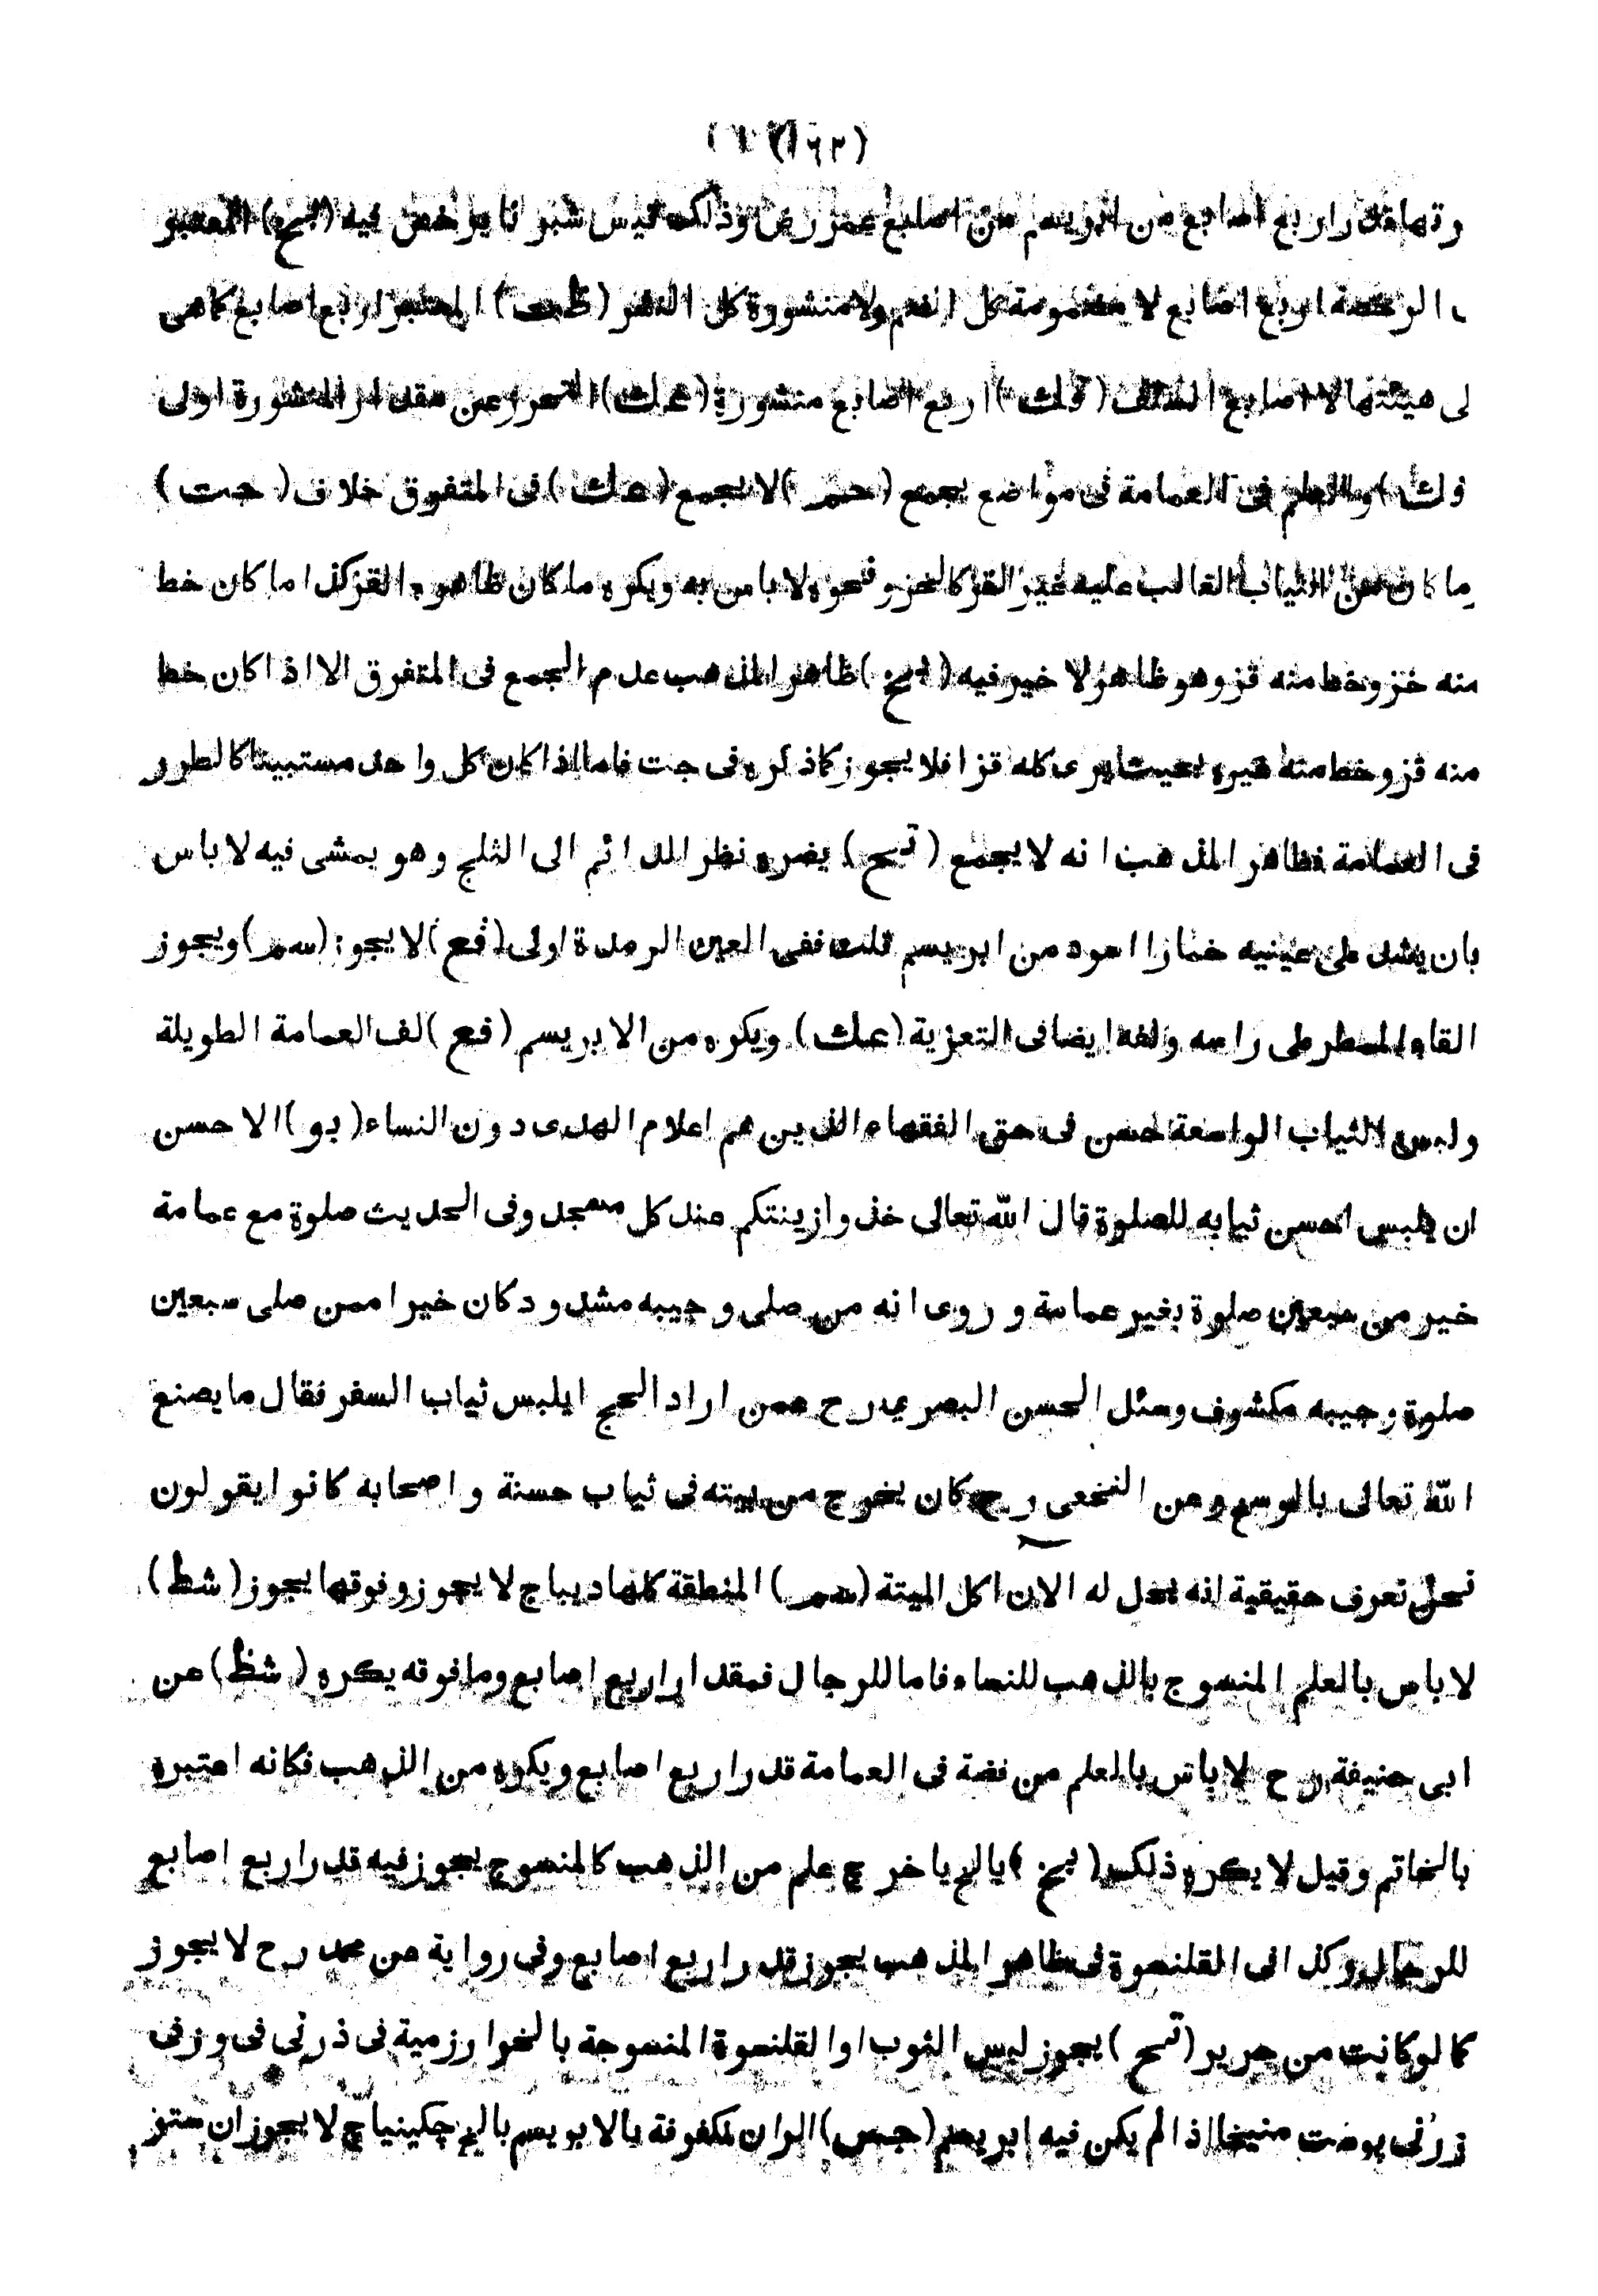 (١٦٣)
اربع اصابع من ابريسم من اصابع عمر رض وذلك قيس شبرنا يرخص فيه (بخ) المعتبر
الرخصة اربع اصابع لا مضمومة كل الضم ولا منشورة كل النشر (ظت) المعتبر اربع اصابع كما هى
لى هيئتها لا اصابع السلف () اربع اصابع منشورة (عك) التحرز عن مقدار المنشورة اولى
والعلم فى العمامة فى مواضع يجمع (حمر) لا يجمع (عك) فى المتفرق خلاف (جت)
ما كان من الثياب الغالب عليه غير القز كالخز ونحوه لا باس به ويكره ما كان ظاهره القز كذا ما كان خط
منه خز وخط منه قز وهو ظاهر لا خير فيه (بخ) ظاهر المذهب عدم الجمع فى المتفرق الا اذا كان خط
منه قز وخط منه غيره بحيث يرى كله قزا فلا يجوز كما ذكره فى جت فاما اذا كان كل واحد مستبينا كالطرر
فى العمامة فظاهر المذهب انه لا يجمع (قح) يضره نظر الدائم الى الثلج وهو يمشى فيه لا باس
بان يشد على عينيه خمارا اسود من ابريسم قلت ففى العين الرمدة اولى (فع) لا يجوز (سمر) ويجوز
القاء المسطر على راسه ولفه ايضا فى التعزية (عك) ويكره من الابريسم (فع) لف العمامة الطويلة
ولبس الثياب الواسعة حسن فى حق الفقهاء الذين هم اعلام الهدى دون النساء (بو) الاحسن
ان يلبس احسن ثيابه للصلوة قال الله تعالى خذوا زينتكم عند كل مسجد وفى الحديث صلوة مع عمامة
خير من سبعين صلوة بغير عمامة وروى انه من صلى وجيبه مشدود كان خيرا ممن صلى سبعين
صلوة وجيبه مكشوف وسئل الحسن البصرى رح عمن اراد الحج ايلبس ثياب السفر فقال ما يصنع
الله تعالى بالوسخ وعن النخعى رح كان يخرج من بيته فى ثياب حسنة واصحابه كانوا يقولون
نحن نعرف حقيقية انه يحل له الان اكل الميتة (سمر) المنطقة كلها ديباج لا يجوز وفوقها يجوز (شظ)
لا باس بالعلم المنسوج بالذهب للنساء فاما للرجال فمقدار اربع اصابع وما فوقه يكره (شظ) عن
ابى حنيفة رح لا باس بالعلم من فضة فى العمامة قدر اربع اصابع ويكره من الذهب فكانه اعتبره
بالخاتم وقيل لا يكره ذلك (بخ) علم من الذهب كالمنسوج يجوز فيه قدر اربع اصابع
للرجال وكذا فى القلنسوة فى ظاهر المذهب يجوز قدر اربع اصابع وفى رواية عن محمد رح لا يجوز
كما لو كانت من حرير (قح) يجوز لبس الثوب او القلنسوة المنسوجة بالخوارزمية
اذا لم يكن فيه ابريسم (جس) الران المكفوفة بالابريسم لا يجوز ان